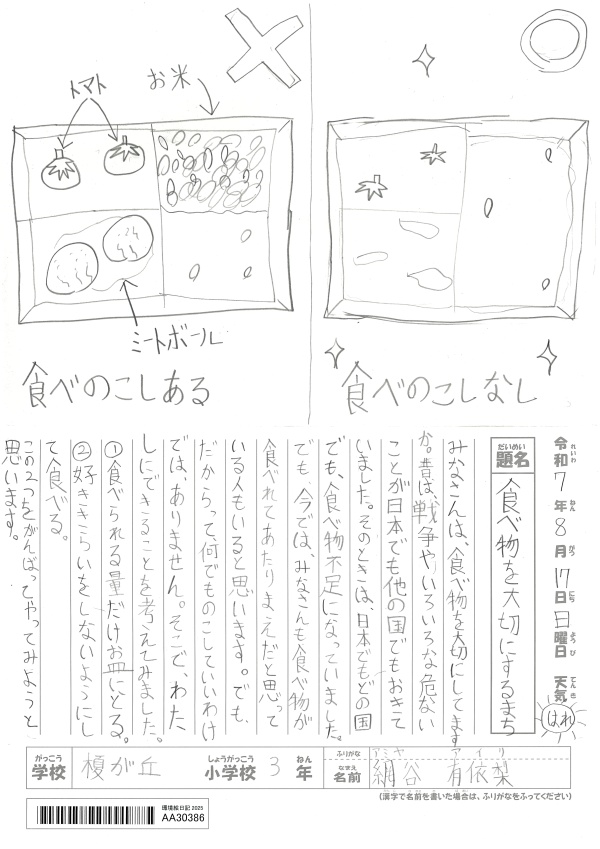 トマト
お米
ミートボール
食べのこしある
食べのこしなし
令和7年8月17日日曜日 天気 はれ
れいわ ねん がつ にち ようび てんき
だいめい
題名 食べ物を大切にするまち
みなさんは、食べ物を大切にしてます
か。昔は、戦争やいろいろな危ない
ことが日本でも他の国でもおきて
いました。そのときは、日本でもどの国
でも、食べ物不足になっていました。
でも、今では、みなさんも食べ物が
食べれてあたりまえだと思って
いる人もいると思います。でも、
だからって、何でものこしていいわけ
では、ありません。そこで、わた
しにできることを考えてみました。
①食べられる量だけお皿にとる。
②好ききらいをしないようにし
て食べる。
この2つをがんばってやってみようと
思います。
がっこう しょうがっこう ねん
学校 榎が丘 小学校 3 年
ふりがな アミヤ アイリ
なまえ
名前 網谷 有依梨
(漢字で名前を書いた場合は、ふりがなをふってください)
環境絵日記 2025
AA30386